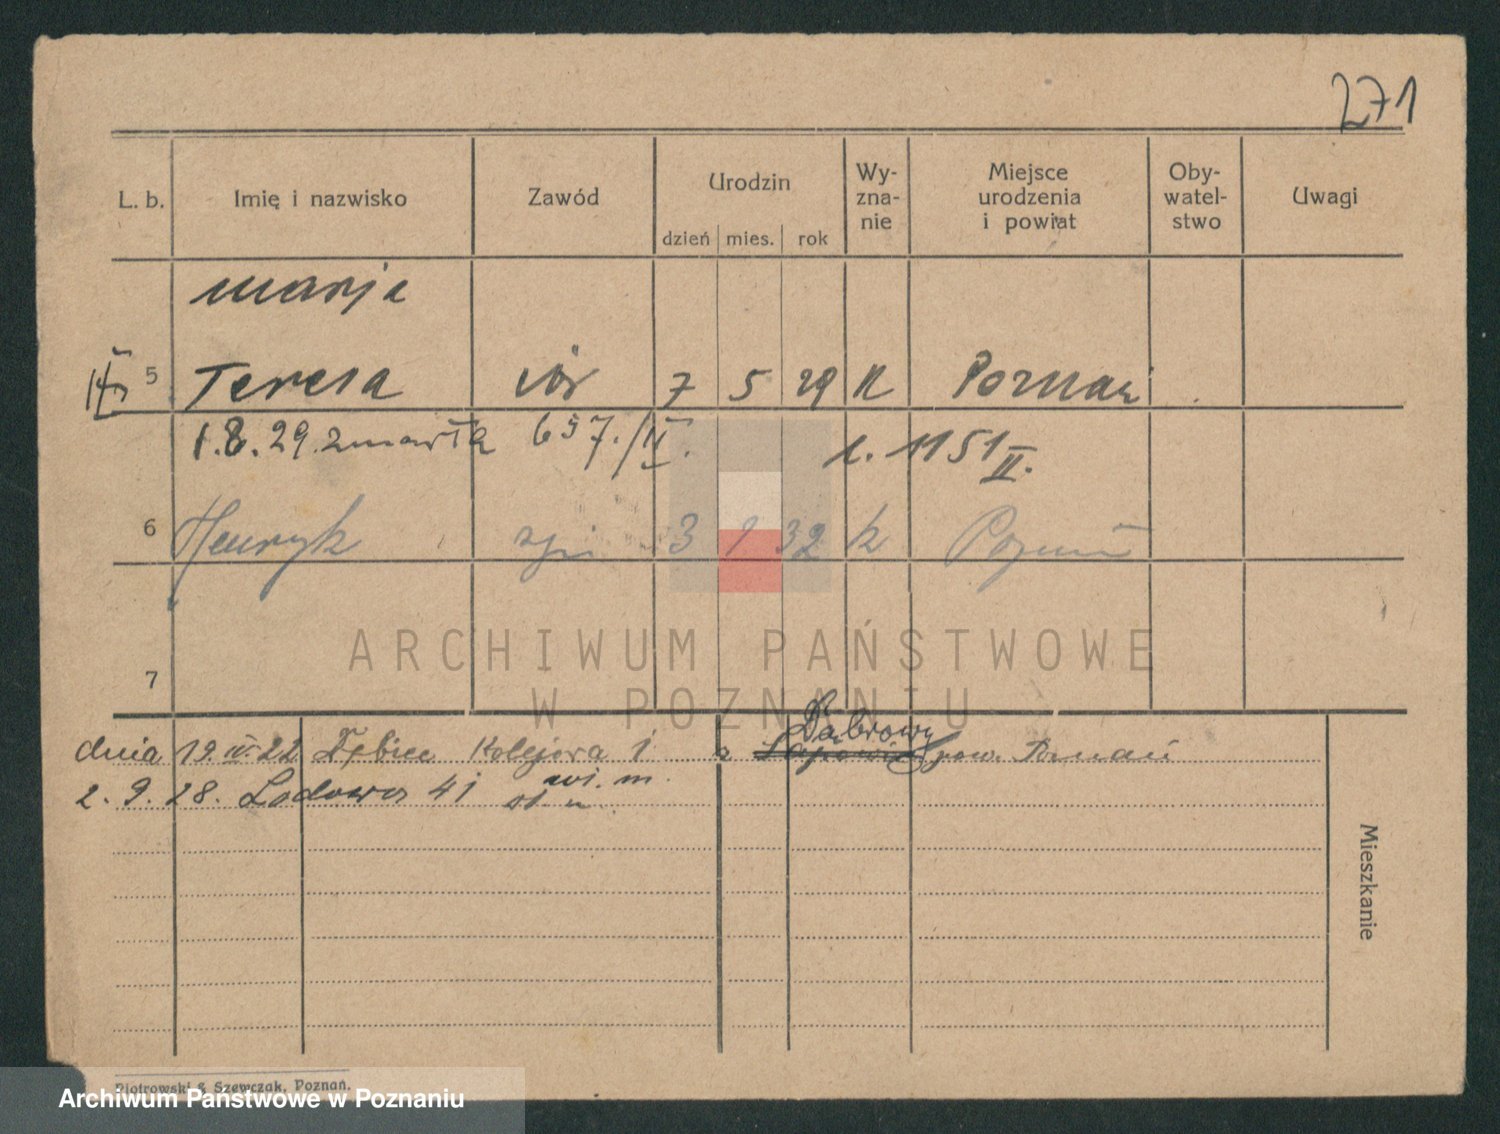 271
L. b. Imię i nazwisko Zawód Urodzin dzień mies. rok Wy-zna-nie Miejsce urodzenia i powiat Oby-watel-stwo Uwagi
Marja
5 Teresa 7 5 29 K Poznań
1.8.29. zmarła 657./II. 1151 II.
6 Henryk syn 3 1 32 k Poznań
7
ARCHIWUM PAŃSTWOWE
W POZNANIU
Dąbrowy
dnia 19. IV 22 Dębiec Kolejowa 1 z pow. Poznań
2. 9. 28. Lodowa 41 m.
Mieszkanie
Piotrowski & Szewczak, Poznań.
Archiwum Państwowe w Poznaniu